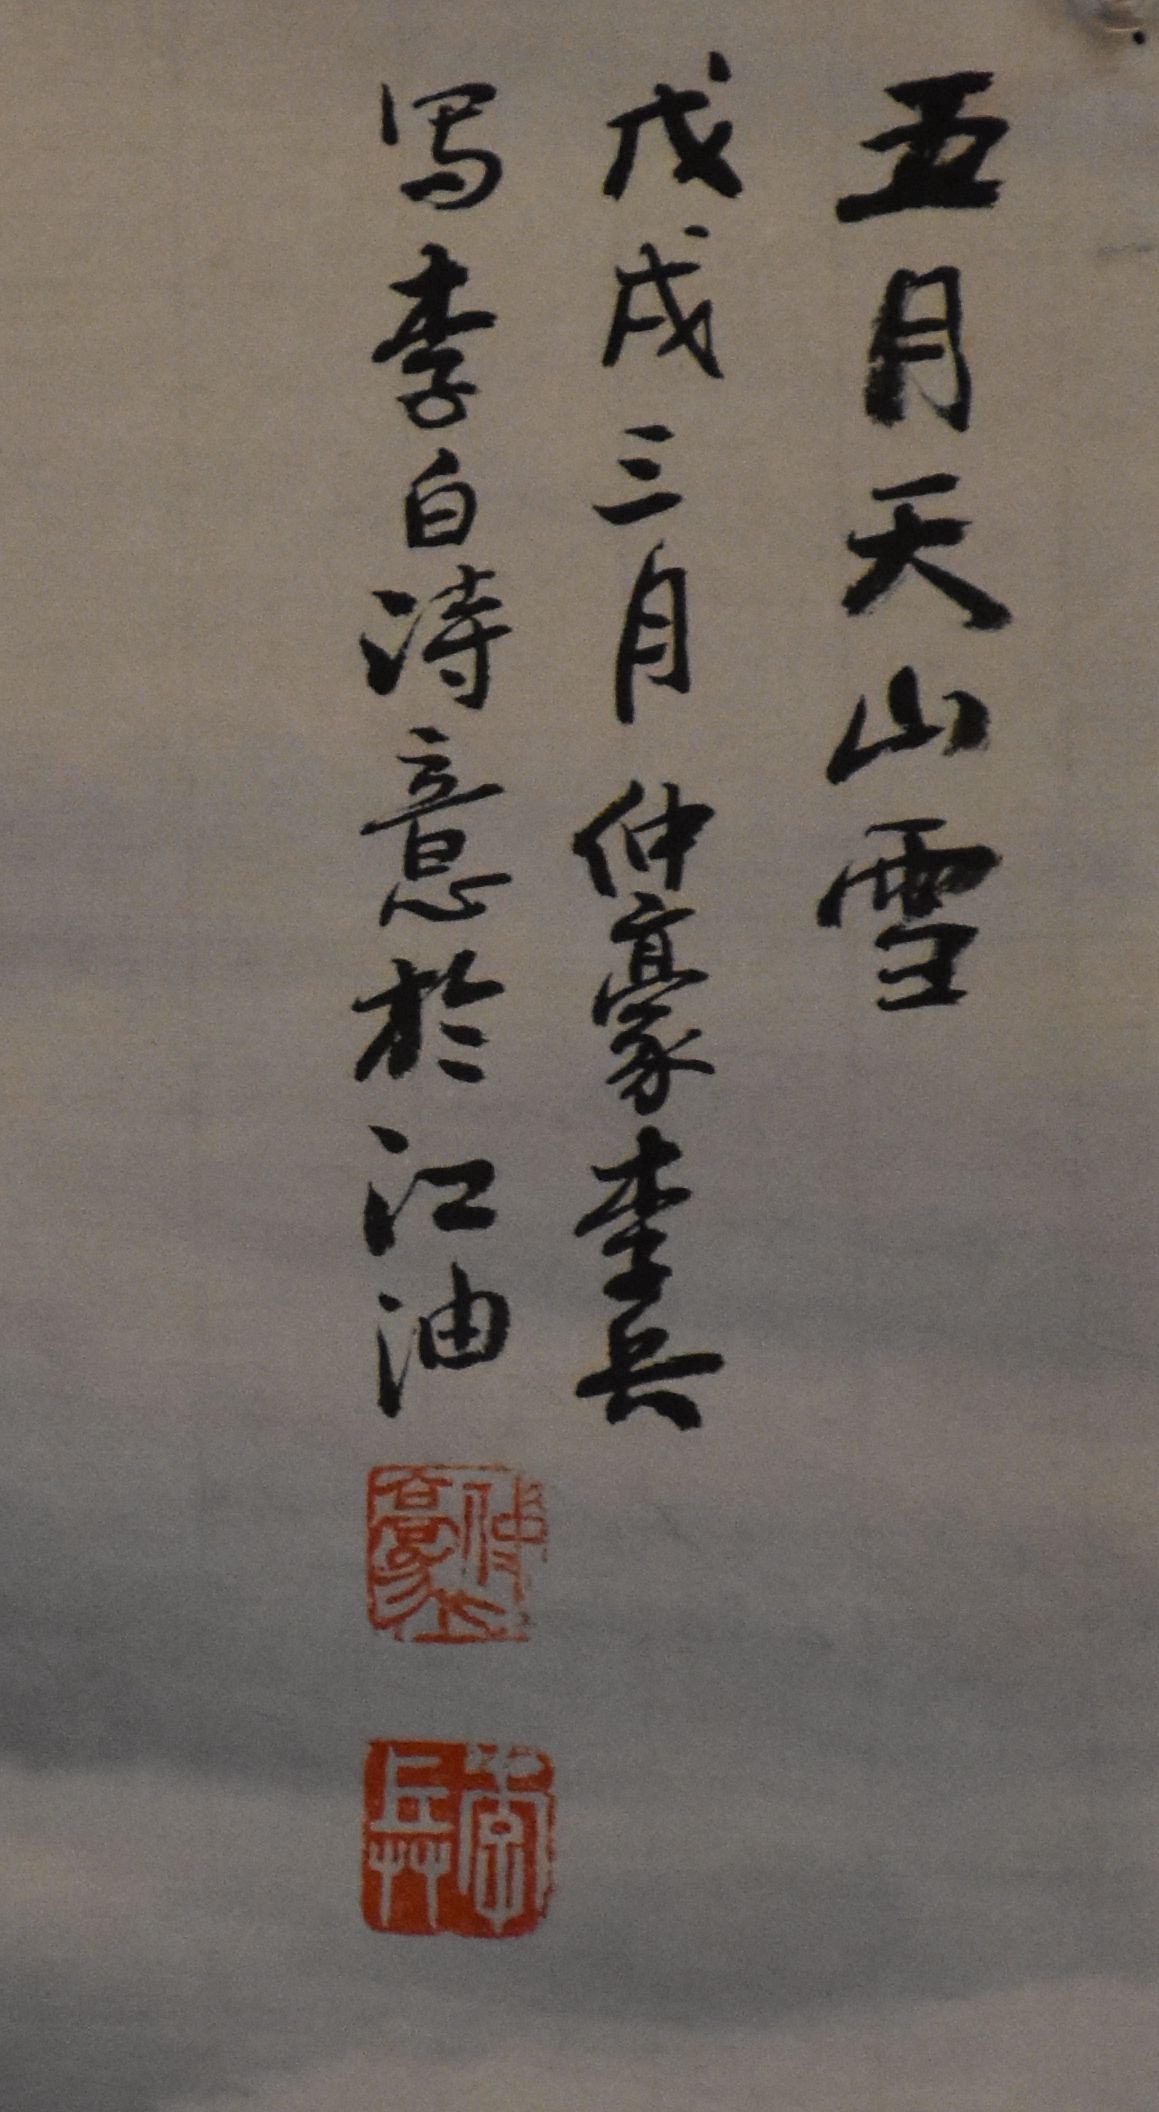 五月天山雪
戊戌三月仲豪李兵
写李白诗意於江油
仲豪
李兵